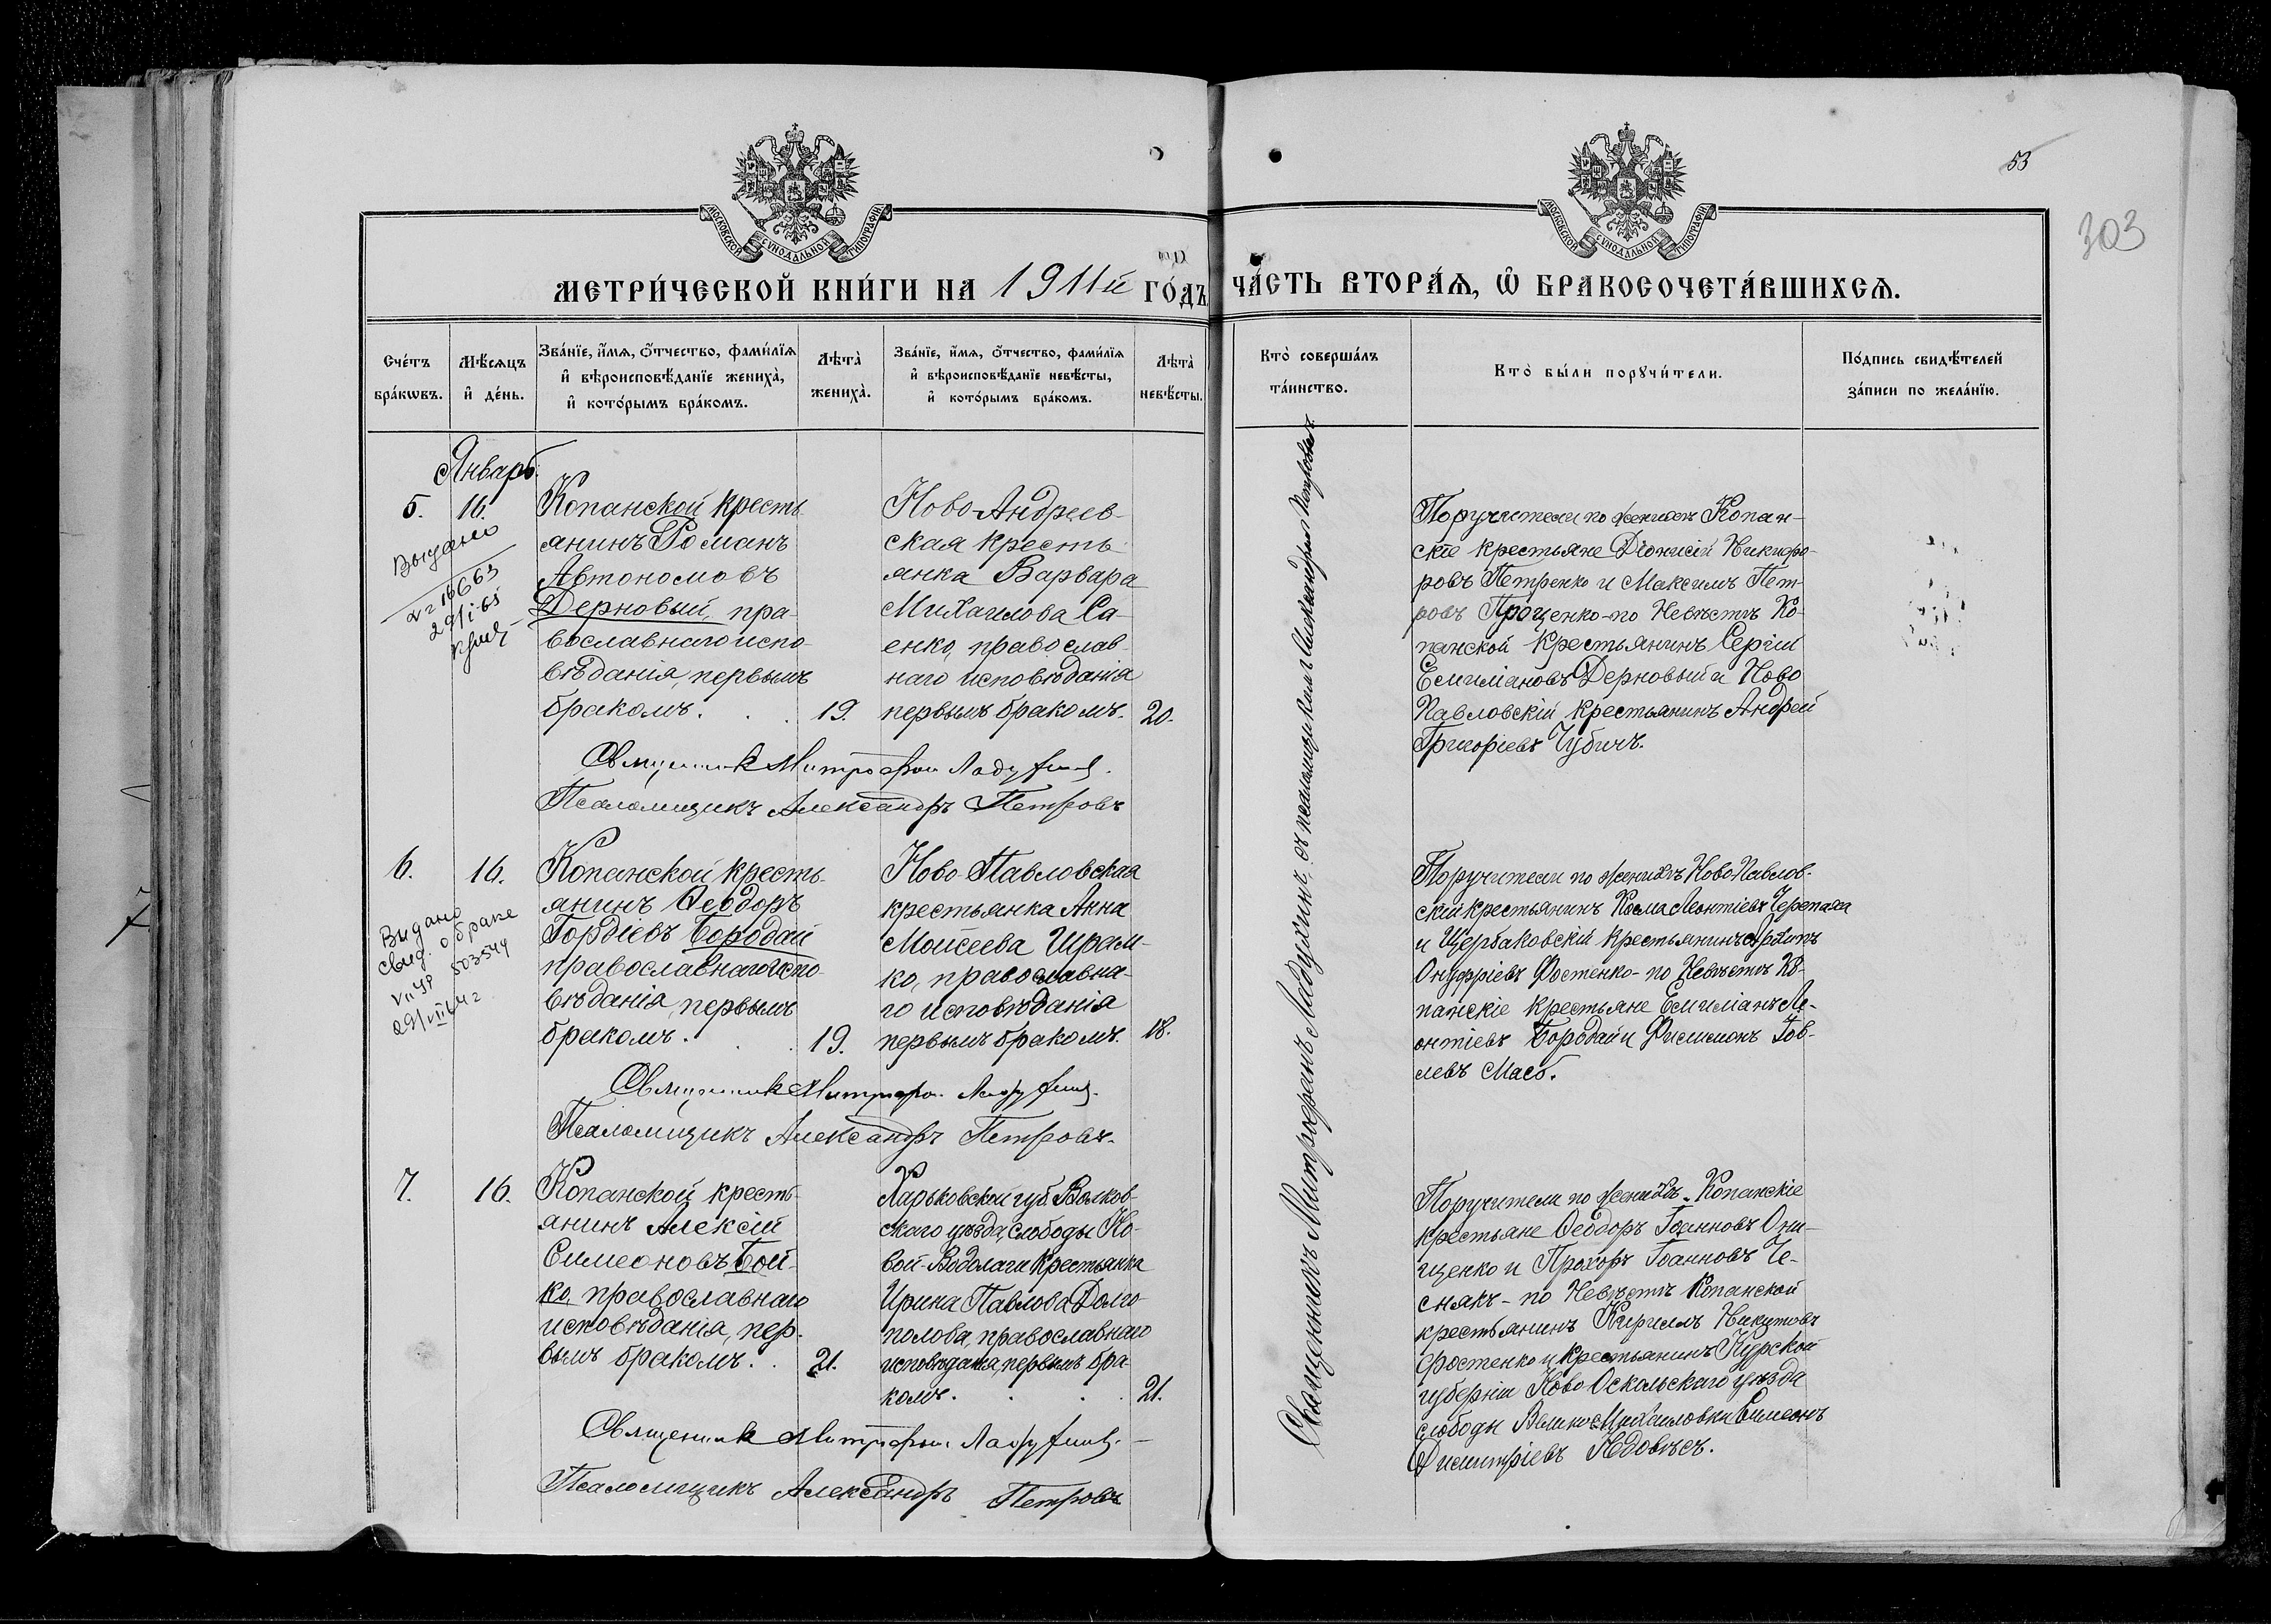 53
303
МОСКОВСКОЙ СѴНОДАЛЬНОЙ ТИПОГРАФІИ
МОСКОВСКОЙ СѴНОДАЛЬНОЙ ТИПОГРАФІИ
МЕТРИ́ЧЕСКОЙ КНИ́ГИ НА 1911й ГО́ДЪ
ЧА́СТЬ ВТОРА́Ѧ, Ѿ БРАКОСОЧЕТА́ВШИХСѦ.
Сче́тъ бра́кѡвъ.
Мѣ́сяцъ и҆ де́нь.
Зва́нїе, и҆́мѧ, ѻ҆́тчество, фами́лїѧ
и҆ вѣроисповѣ́данїе жениха̀,
и҆ кото́рымъ бра́комъ.
Лѣта̀ жениха̀.
Зва́нїе, и҆́мѧ, ѻ҆́тчество, фами́лїѧ
и҆ вѣроисповѣ́данїе невѣ́сты,
и҆ кото́рымъ бра́комъ.
Лѣта̀ невѣ́сты.
Кто̀ соверша́лъ
та́инство.
Кто̀ бы́ли порꙋчи́тели.
По́дпись свидѣ́телей
за́писи по жела́нїю.
Январь.
5. 16.
Выдано
№ 16663
29/I-65
Копанской кресть-
янинъ Романъ
Автономовъ
Дерновый, пра-
вославнаго испо-
вѣданія, первымъ
бракомъ. . . 19.
Ново-Андреев-
ская кресть-
янка Варвара
Михаилова Са-
енко, православ-
наго исповѣданія
первымъ бракомъ. 20.
Поручители по женихѣ Копан-
скіе крестьяне Діонисій Никифо-
ровъ Петренко и Максимъ Пет-
ровъ Проценко-по Невѣстѣ Ко-
панской крестьянинъ Сергій
Емиліановъ Дерновый и Ново
Павловскій крестьянинъ Андрей
Григоріевъ Чубичъ.
Священникъ Митрофанъ Ладухинъ.
Псаломщикъ Александръ Петровъ
Священникъ Митрофанъ Ладухинъ съ псаломщикомъ Александромъ Петровымъ.
6. 16.
Выдано
свид. о браке
V II ЧР 503544
29/VIII 64 г
Копанской кресть-
янинъ Ѳеодоръ
Гордіевъ Бородай
православнаго испо-
вѣданія, первымъ
бракомъ. . . 19.
Ново-Павловская
крестьянка Анна
Моисеева Шрам-
ко, православна-
го исповѣданія
первымъ бракомъ. 18.
Поручители по женихѣ Ново Павлов-
скій крестьянинъ Косма Леонтіевъ Черепаха
и Щербаковскій крестьянинъ Архипъ
Онуфріевъ Фостенко-по Невѣстѣ Ко-
панскіе крестьяне Емиліанъ Ле-
онтіевъ Бородай и Филимонъ Іов-
левъ Масъ.
Священникъ Митрофанъ Ладухинъ.
Псаломщикъ Александръ Петровъ.
7. 16.
Копанской кресть-
янинъ Алексій
Симеоновъ Бой-
ко, православнаго
исповѣданія, пер-
вымъ бракомъ. . 21.
Харьковской губ. Валков-
скаго уѣзда, слободы Но-
вой-Водолаги крестьянка
Ирина Павлова Долго-
полова, православнаго
исповѣданія, первымъ бра-
комъ. . . . 21.
Поручители по женихѣ-Копанскіе
крестьяне Ѳеодоръ Іоанновъ Они-
щенко и Прохоръ Іоанновъ Че-
снякъ-по Невѣстѣ Копанской
крестьянинъ Кириллъ Никитовъ
Фостенко и крестьянинъ Курской
губерніи Ново Оскольскаго уѣзда
слободы Велико Михаиловки Симеонъ
Димитріевъ
Священникъ Митрофанъ Ладухинъ.
Псаломщикъ Александръ Петровъ